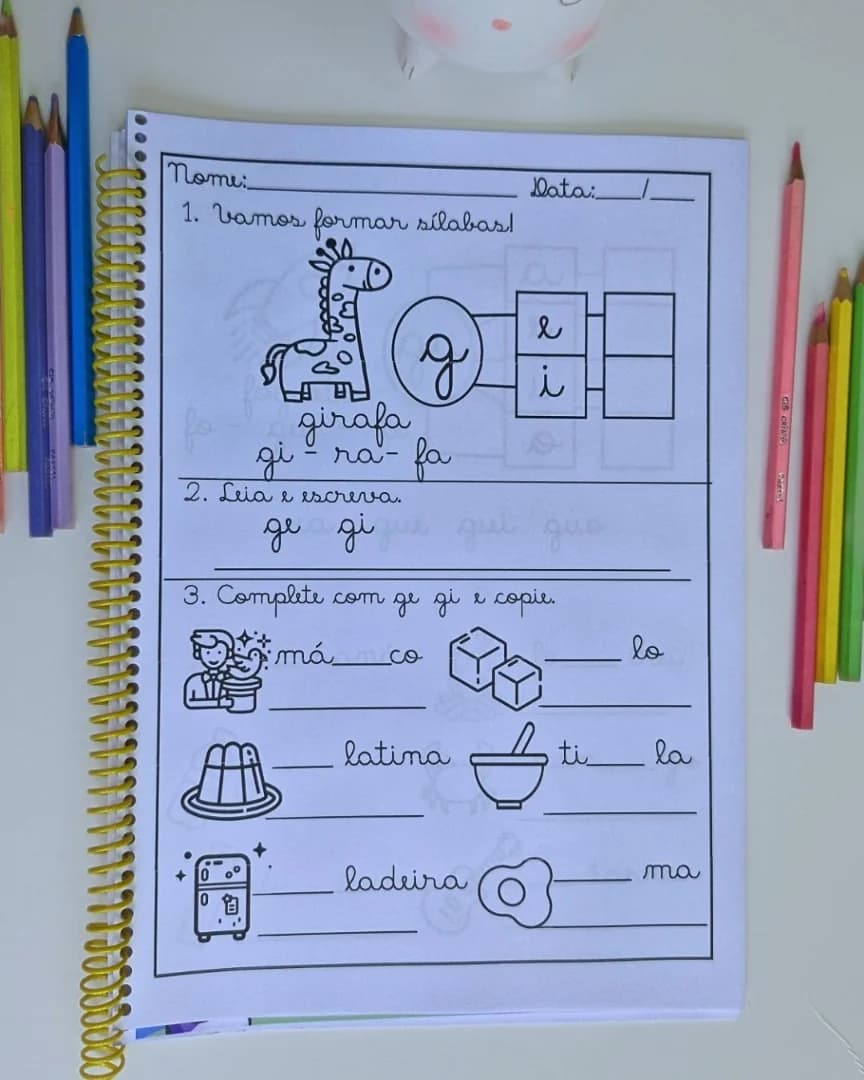 Nome:____________ Data:___/___
1. Vamos formar sílabas!
g e
i
girafa
gi - ra - fa
2. Leia e escreva.
ge gi
3. Complete com ge gi e copie.
má____co ____ lo
____ latina ti____ la
____ ladeira ____ ma